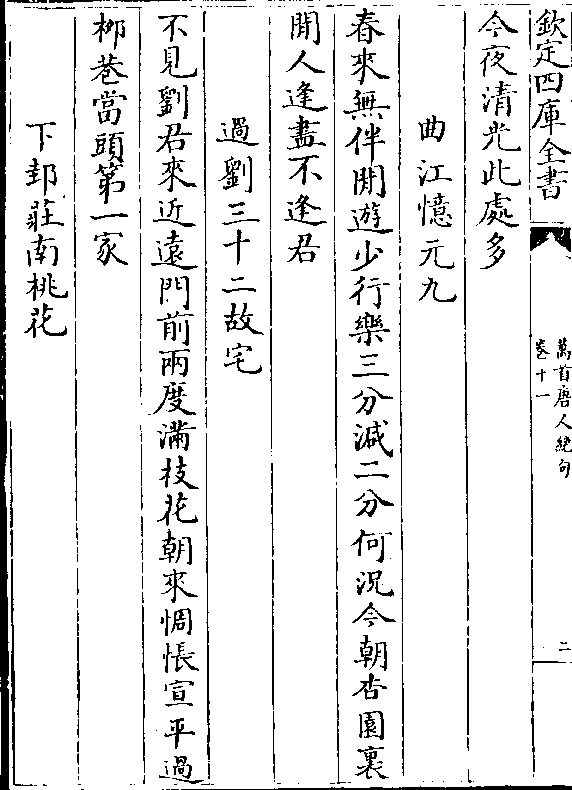 欽定四庫全書
萬首唐人絶句
卷十一
二
今夜清光此處多
曲江憶元九
春來無伴閒遊少行樂三分減二分何況今朝杏園裏
閒人逢盡不逢君
過劉三十二故宅
不見劉君來近遠門前兩度滿枝花朝來惆悵宣平過
柳巷當頭第一家
下邽莊南桃花